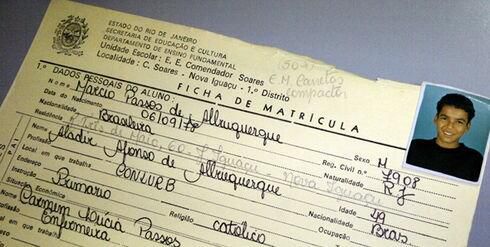 ESTADO DO RIO DE JANEIRO
SECRETARIA DE EDUCAÇÃO E CULTURA
DEPARTAMENTO DE ENSINO FUNDAMENTAL
Unidade Escolar: E. E. Comendador Soares
Localidade: C. Soares - Nova Iguaçu - 1.º Distrito
E M Carretos
Compactor
FICHA DE MATRÍCULA
1.º DADOS PESSOAIS DO ALUNO:
Nome Marcio Passos de Albuquerque
Sexo M
Data do Nascimento 06/09/78
Reg. Civil n.º 7908
Nacionalidade Brasileira
Naturalidade R J
Residência de Maio, 60. - Nova Iguaçu
Nome Aladir Afonso de Albuquerque
Idade 49
Local em que trabalha CONLURB
Nacionalidade Bras
Endereço
Instrução Primario
Religião católico
Ocupação
Situação Econômica
Nome Carmem Lúcia Passos
Profissão Enfermeira
Local em que trabalha